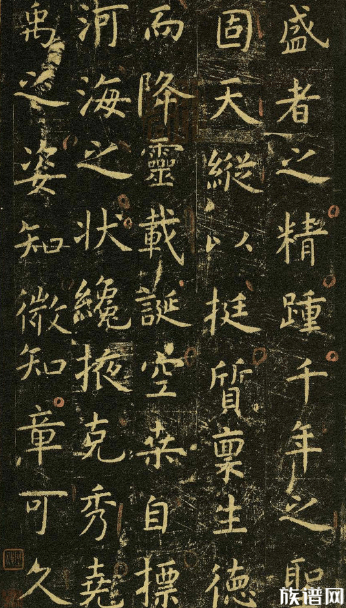 盛者之精踵千年之聖
固天縱以挺質稟生德
而降靈載誕空桒自摽
河海之状纔掖克秀堯
禹之姿知微知章可久
族谱网